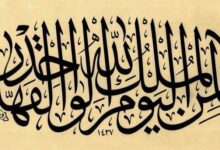 لمن الملك اليوم لله الواحد القهار
١٤٣٧